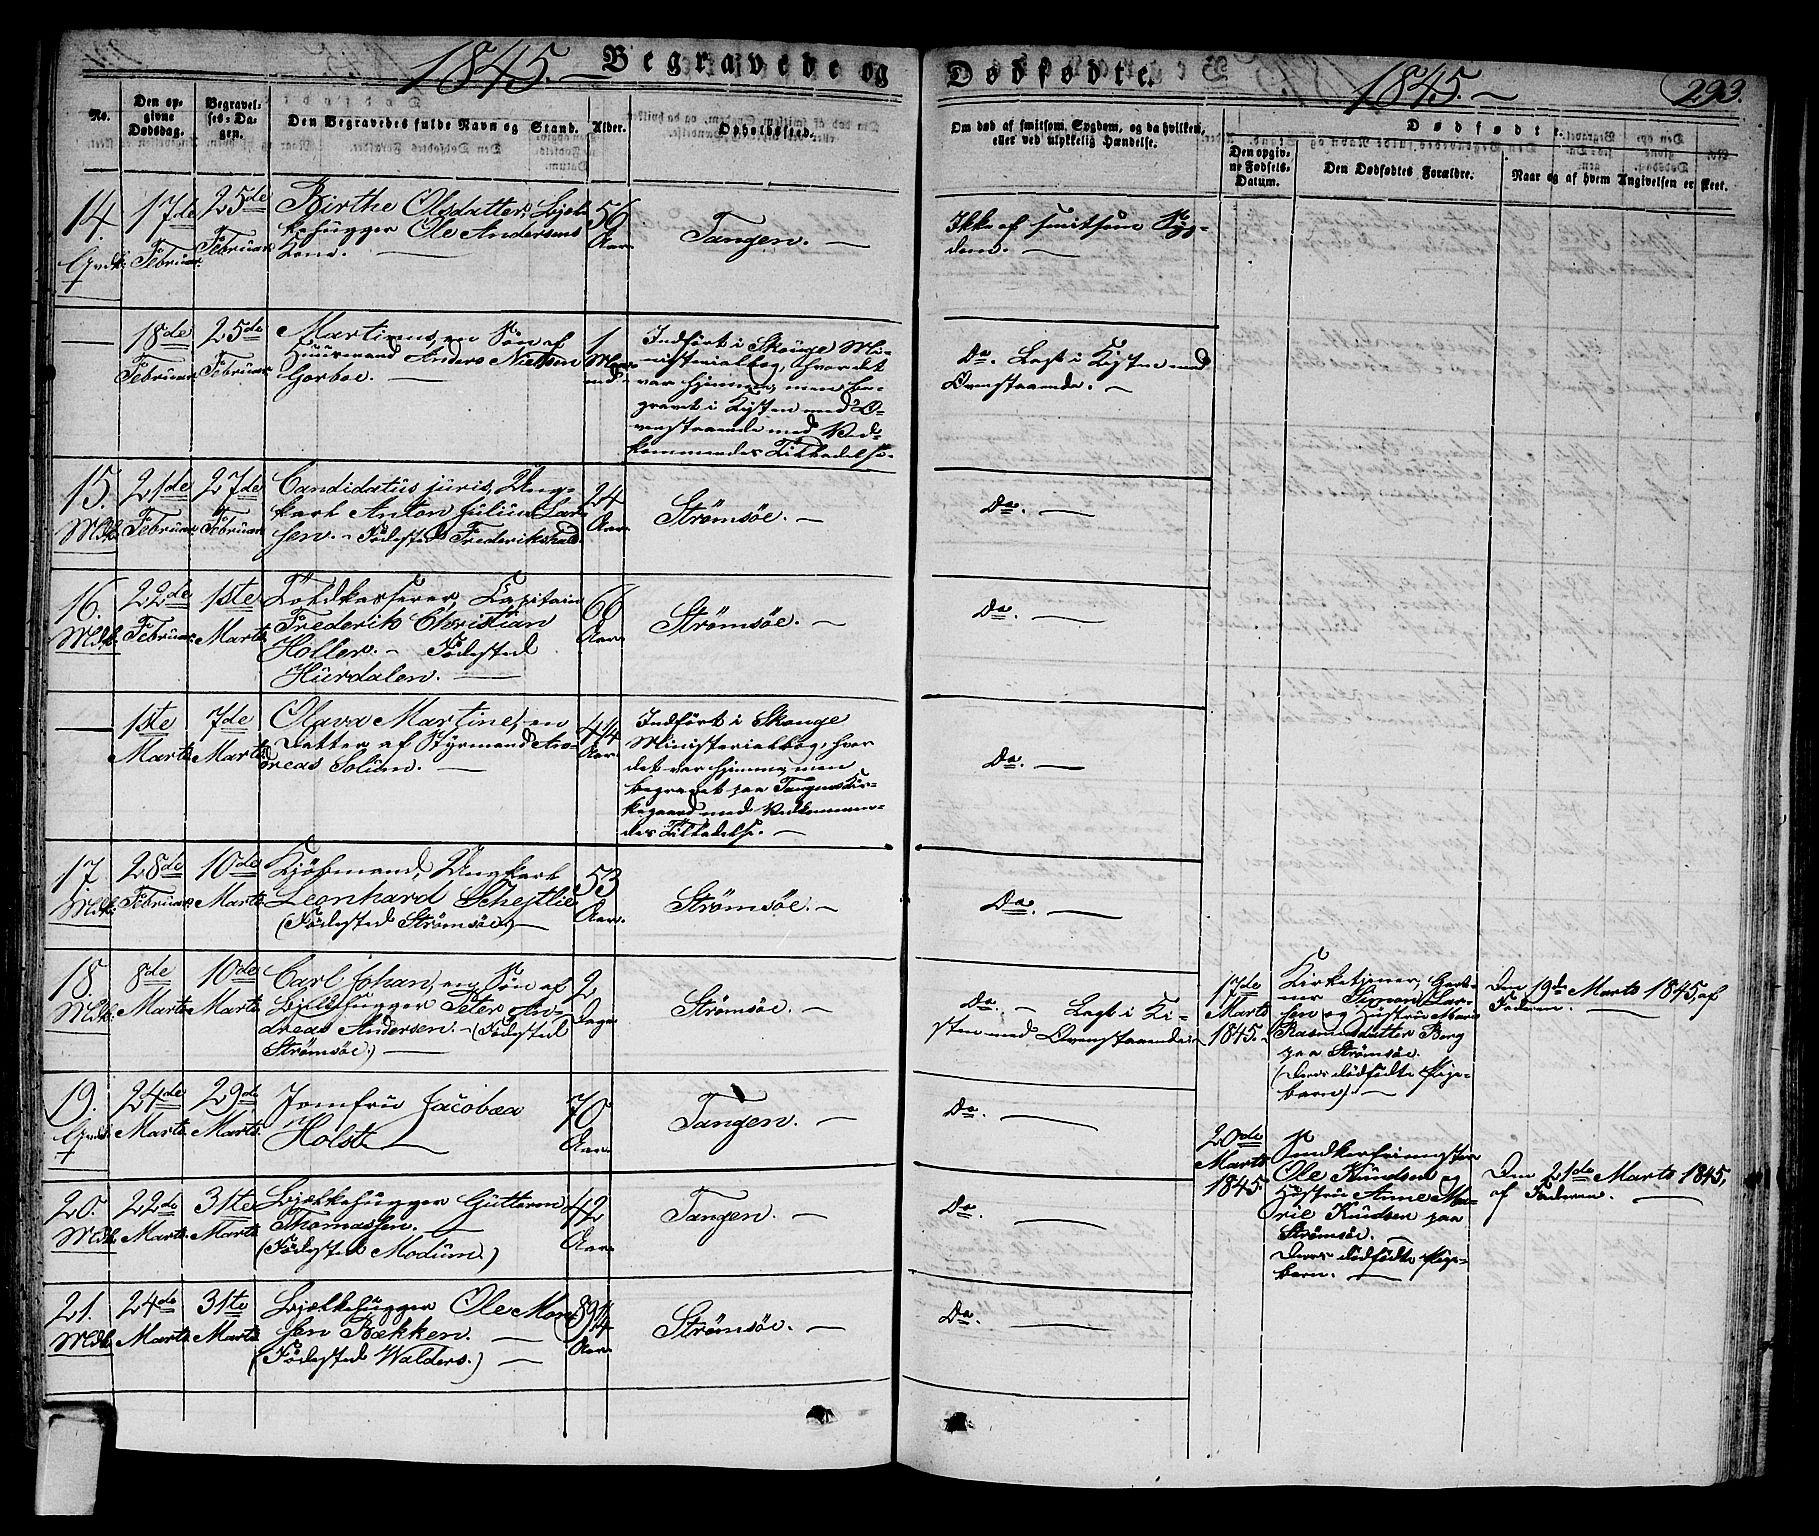 1845. — Begravede og
Dødfødte. 1845. — 293.
No.
Den op-
givne
Dødsdag.
Begravel-
ses-Da-
gen.
Den Begravedes fulde Navn og Stand.
Alder.
Opholdssted.
Om død af smitsom Sygdom, og da hvilken,
eller ved ulykkelig Hændelse.
Dødfødte.
Den opgiv-
ne Fødsels-
Datum.
Den Dødfødtes Forældre.
Naar og af hvem Angivelsen er skeet.
14.
Qvdk.
17de
Februar.
25de
Februar.
Birthe Olsdatter, Bjel-
kehugger Ole Andersens
Kone. —
56
Aar.
Tangen. —
Ikke af smitsom Syg-
dom. —
18de
Februar.
25de
Februar.
Martinus, en Søn af
Huusmand Anders Nielsen
Gorboe. —
1
Maa-
ned.
Indført i Skouge Mi-
nisterialbog, hvor det
var hjemme, men be-
gravet i Kisten med O-
venstaaende med Ved-
kommendes Tilladelse.
Do. Lagt i Kisten med
Ovenstaaende. —
15.
Mdk.
21de
Februar.
27de
Februar.
Candidatus juris, Ung-
karl Anton Julius Lar-
sen. — Fødested Frederikshald.
24
Aar.
Strømsøe. —
Do. —
16.
Mdk.
22de
Februar.
1ste
Marts.
Toldkasserer, Capitain
Frederik Christian
Holler. — Fødested
Hurdalen. —
66
Aar.
Strømsøe. —
Do. —
1ste
Marts.
7de
Marts.
Olava Martine, en
Datter af Styrmand An-
dreas Solum. —
44
Aar.
Indført i Skouge
Ministerialbog, hvor
det var hjemme, men
begravet paa Tangens Kir-
kegaard med Vedkommen-
des Tilladelse. —
Do. —
17.
Mdk.
28de
Februar.
10de
Marts.
Kjøbmand, Ungkarl
Leonhard Schejtlie
(Fødested Strømsøe) —
53
Aar.
Strømsøe. —
Do. —
18.
Mdk.
8de
Marts.
10de
Marts.
Carl Johan, en Søn af
Bjelkehugger Peter An-
dreas Andersen. — (Fødested
Strømsøe.) —
2
Dage.
Strømsøe. —
Do. — Lagt i Ki-
sten med Ovenstaaende.
17de
Marts
1845. —
Kirketjener, Gart-
ner Simon Lar-
sen og Hustru Maren
Rasmusdatter Berg
paa Strømsøe.
(Deres dødfødte Pige-
barn). —
Den 19de Marts 1845, af
Faderen. —
19.
Qvdk.
24de
Marts.
29de
Marts.
Jomfru Jacobæa
Holst —
70
Aar.
Tangen. —
Do. —
20de
Marts
1845.
Snedkersvend
Ole Knudsen og
Hustru Anne Ma-
rie Knudsen paa
Strømsøe. —
Deres dødfødte Pige-
barn. —
Den 21de Marts 1845,
af Faderen. —
20.
Mdk.
22de
Marts.
31te
Marts.
Bjelkehugger Guttorm
Thomassen. —
(Fødested Modum.)
42
Aar.
Tangen. —
Do. —
21.
Mdk.
24de
Marts.
31te
Marts.
Bjelkehugger Ole Mon-
sen Bækken. —
(Fødested Walders.) —
89¼
Aar.
Strømsøe. —
Do. —